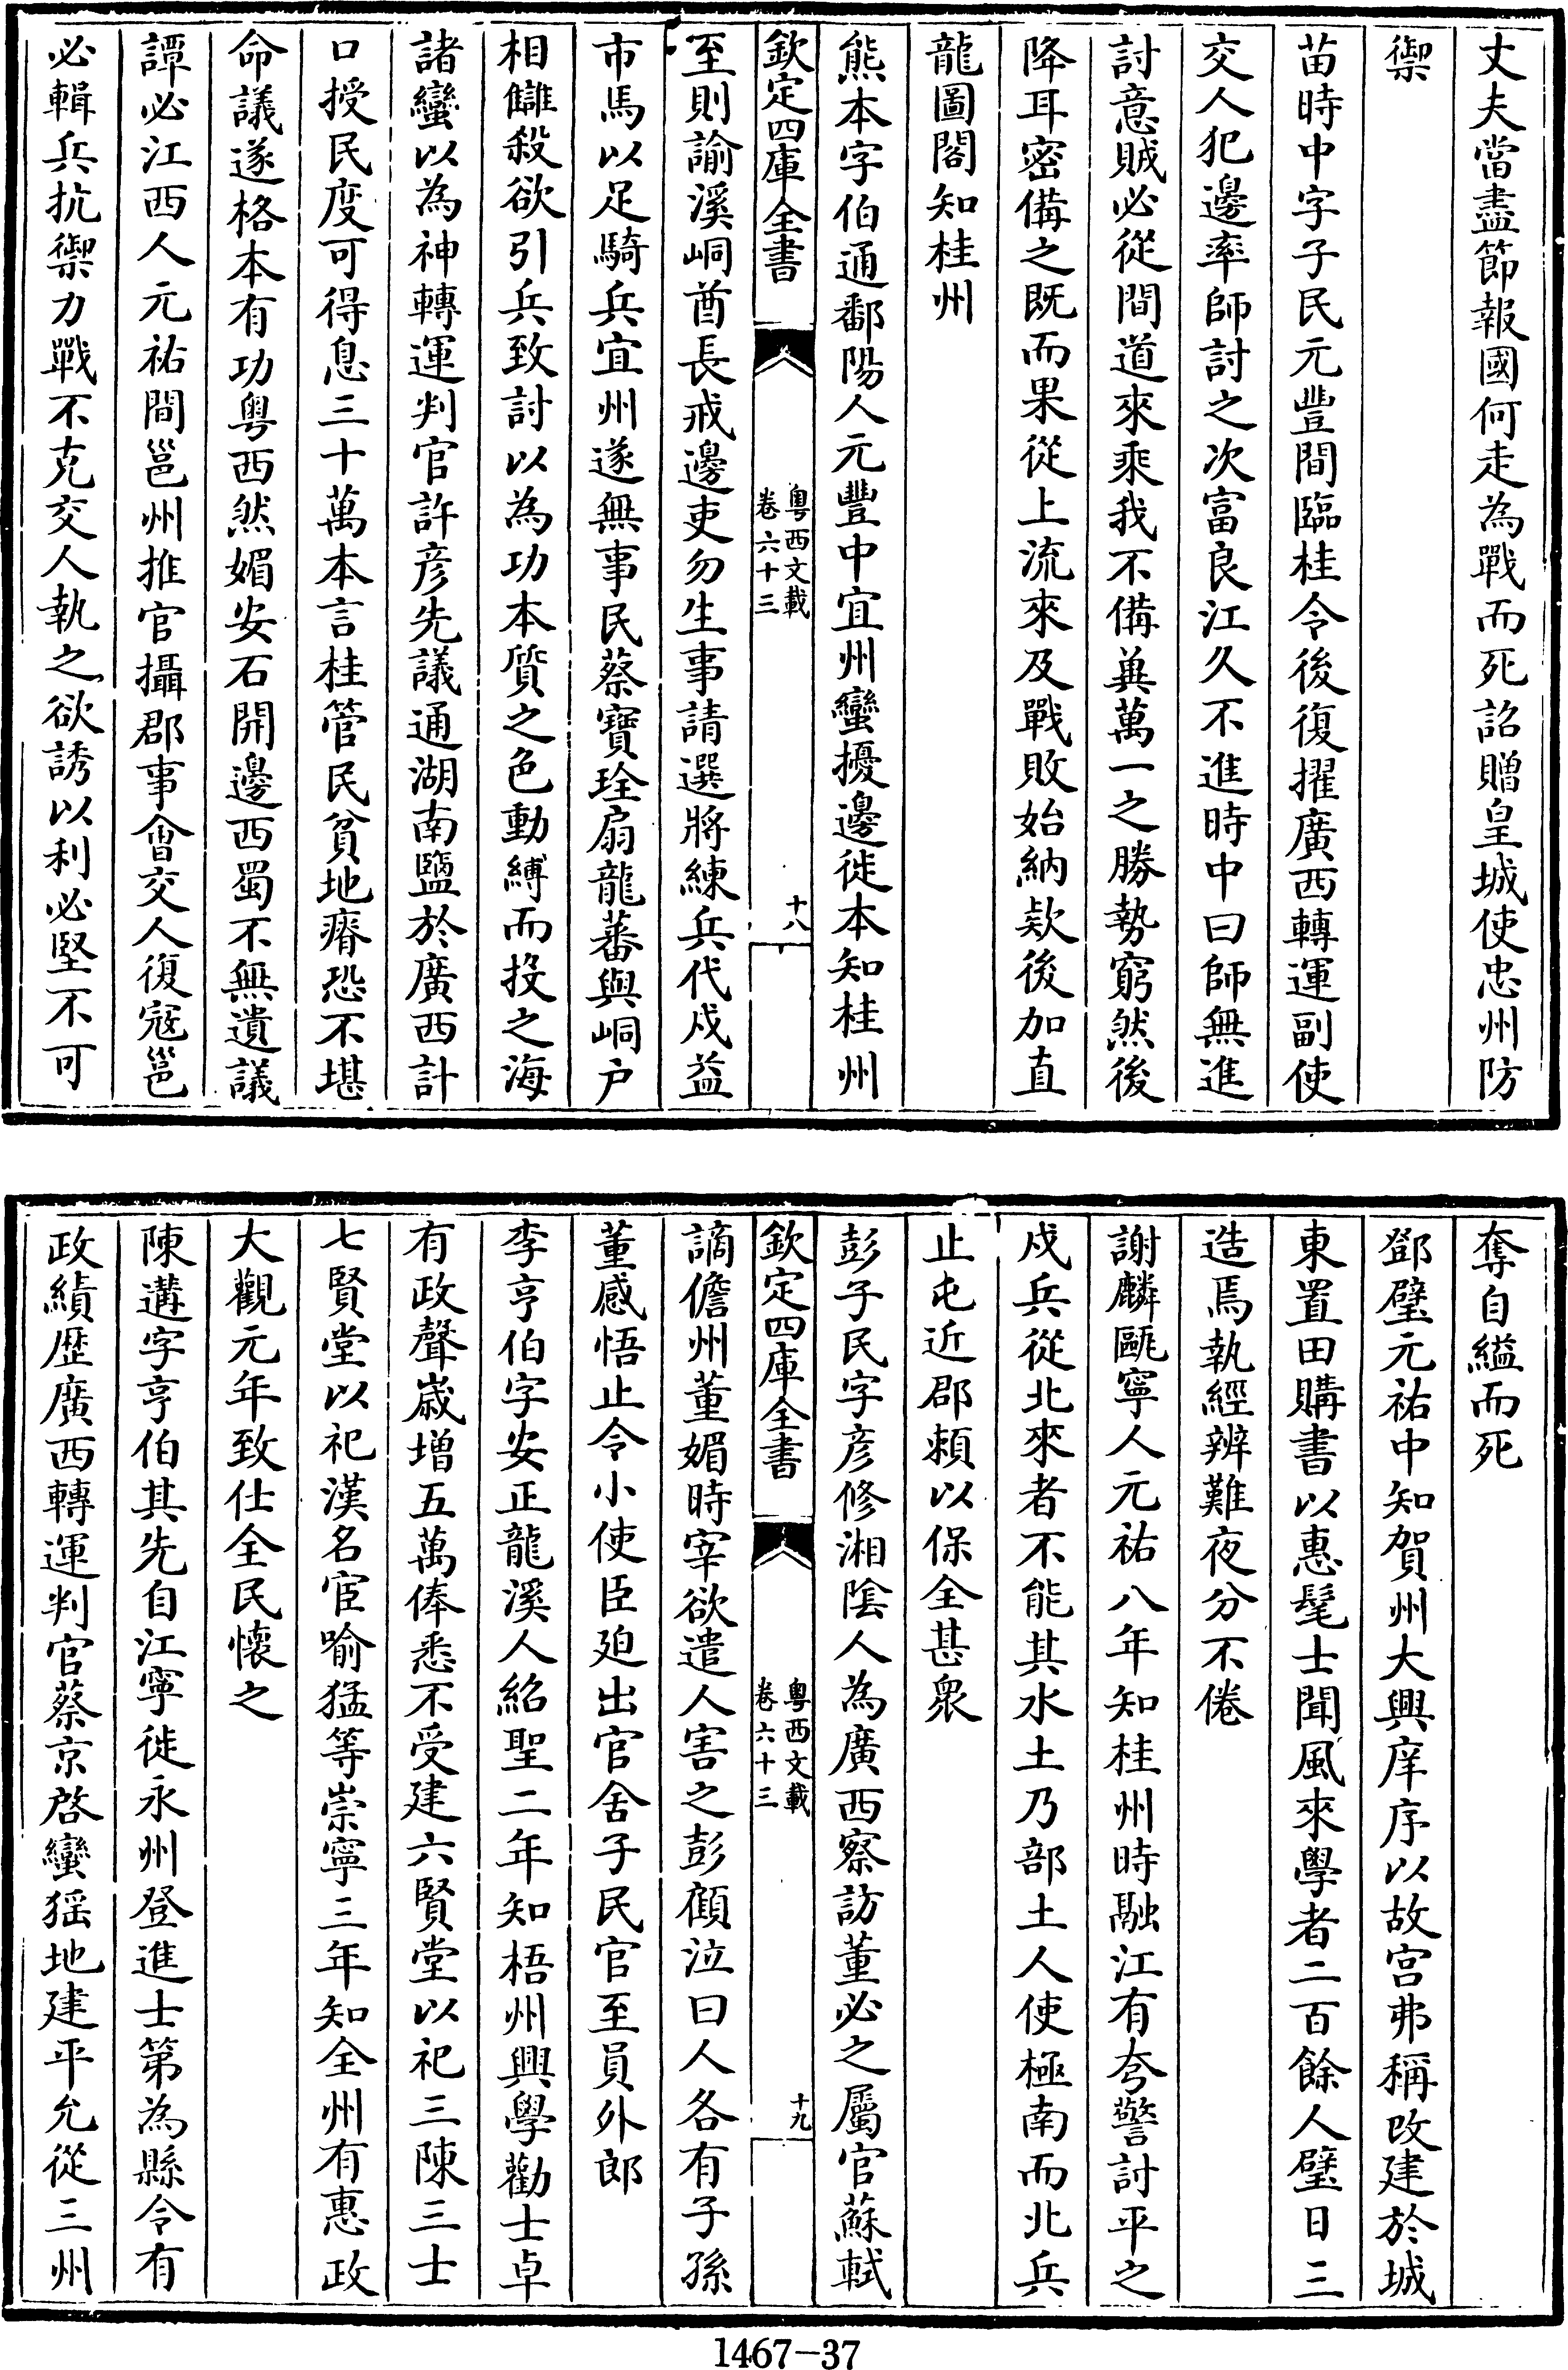 丈夫當盡節報國何走為戰而死詔贈皇城使忠州防
禦
苗時中字子民元豐間臨桂令後復擢廣西轉運副使
交人犯邊率師討之次富良江久不進時中曰師無進
討意賊必從間道來乘我不備冀萬一之勝勢窮然後
降耳密備之既而果從上流來及戰敗始納欵後加直
龍圖閣知桂州
熊本字伯通鄱陽人元豐中宜州蠻擾邊徙本知桂州
欽定四庫全書
粵西文載
卷六十三
十八
至則諭溪峒酋長戒邊吏勿生事請選將練兵代戍益
市馬以足騎兵宜州遂無事民蔡寶玹扇龍蕃與峒戶
相讎殺欲引兵致討以為功本質之色動縛而投之海
諸蠻以為神轉運判官許彥先議通湖南鹽於廣西計
口授民度可得息三十萬本言桂管民貧地瘠恐不堪
命議遂格本有功粵西然媚安石開邊西蜀不無遺議
譚必江西人元祐間邕州推官攝郡事會交人復寇邕
必輯兵抗禦力戰不克交人執之欲誘以利必堅不可
奪自縊而死
鄧璧元祐中知賀州大興庠序以故宮弗稱改建於城
東置田購書以惠髦士聞風來學者二百餘人璧日三
造焉執經辨難夜分不倦
謝麟甌寧人元祐八年知桂州時融江有夸警討平之
戍兵從北來者不能其水土乃部土人使極南而北兵
止屯近郡賴以保全甚衆
彭子民字彥修湘陰人為廣西察訪董必之屬官蘇軾
欽定四庫全書
粵西文載
卷六十三
十九
謫儋州董媚時宰欲遣人害之彭顧泣曰人各有子孫
董感悟止令小使臣廹出官舍子民官至員外郎
李亨伯字安正龍溪人紹聖二年知梧州興學勸士卓
有政聲嵗增五萬俸悉不受建六賢堂以祀三陳三士
七賢堂以祀漢名宦喻猛等崇寧三年知全州有惠政
大觀元年致仕全民懷之
陳遘字亨伯其先自江寧徙永州登進士第為縣令有
政績歴廣西轉運判官蔡京啓蠻猺地建平允從三州
1467-37